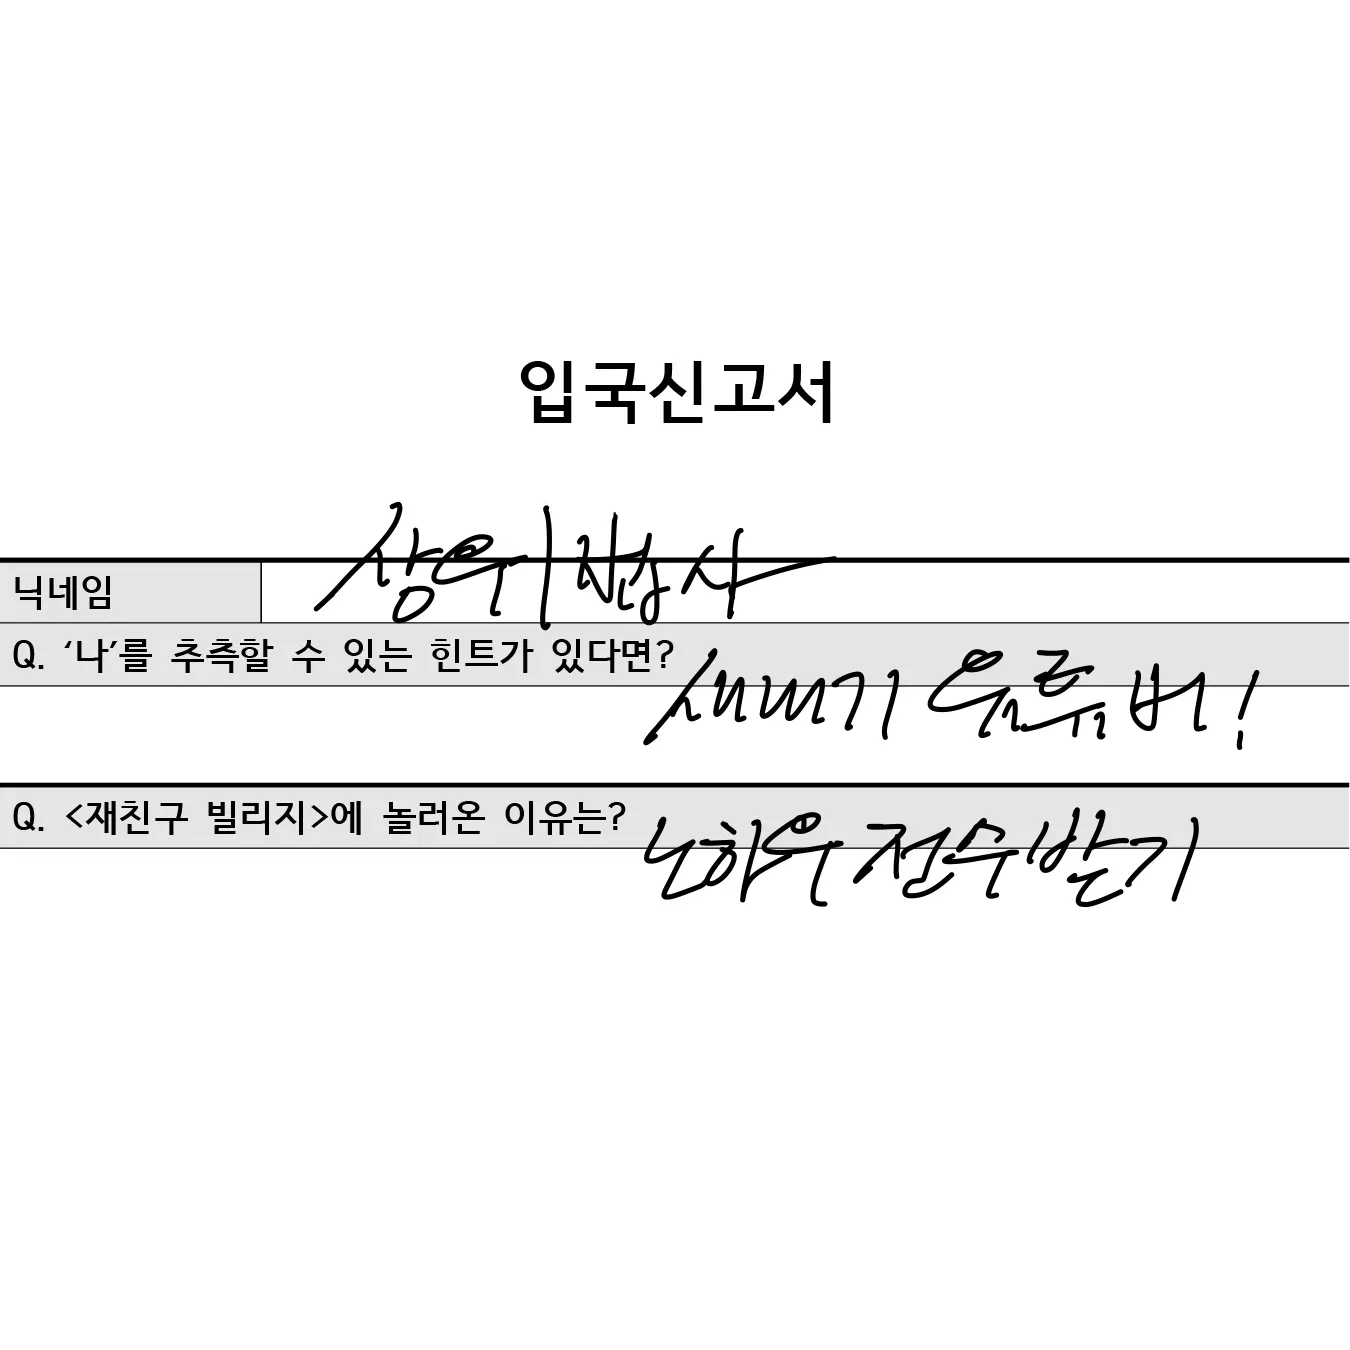 입국신고서
닉네임 상위1밥사
Q. ‘나’를 추측할 수 있는 힌트가 있다면?
새내기 유튜버!
Q. <재친구 빌리지>에 놀러온 이유는?
노하우 전수받기